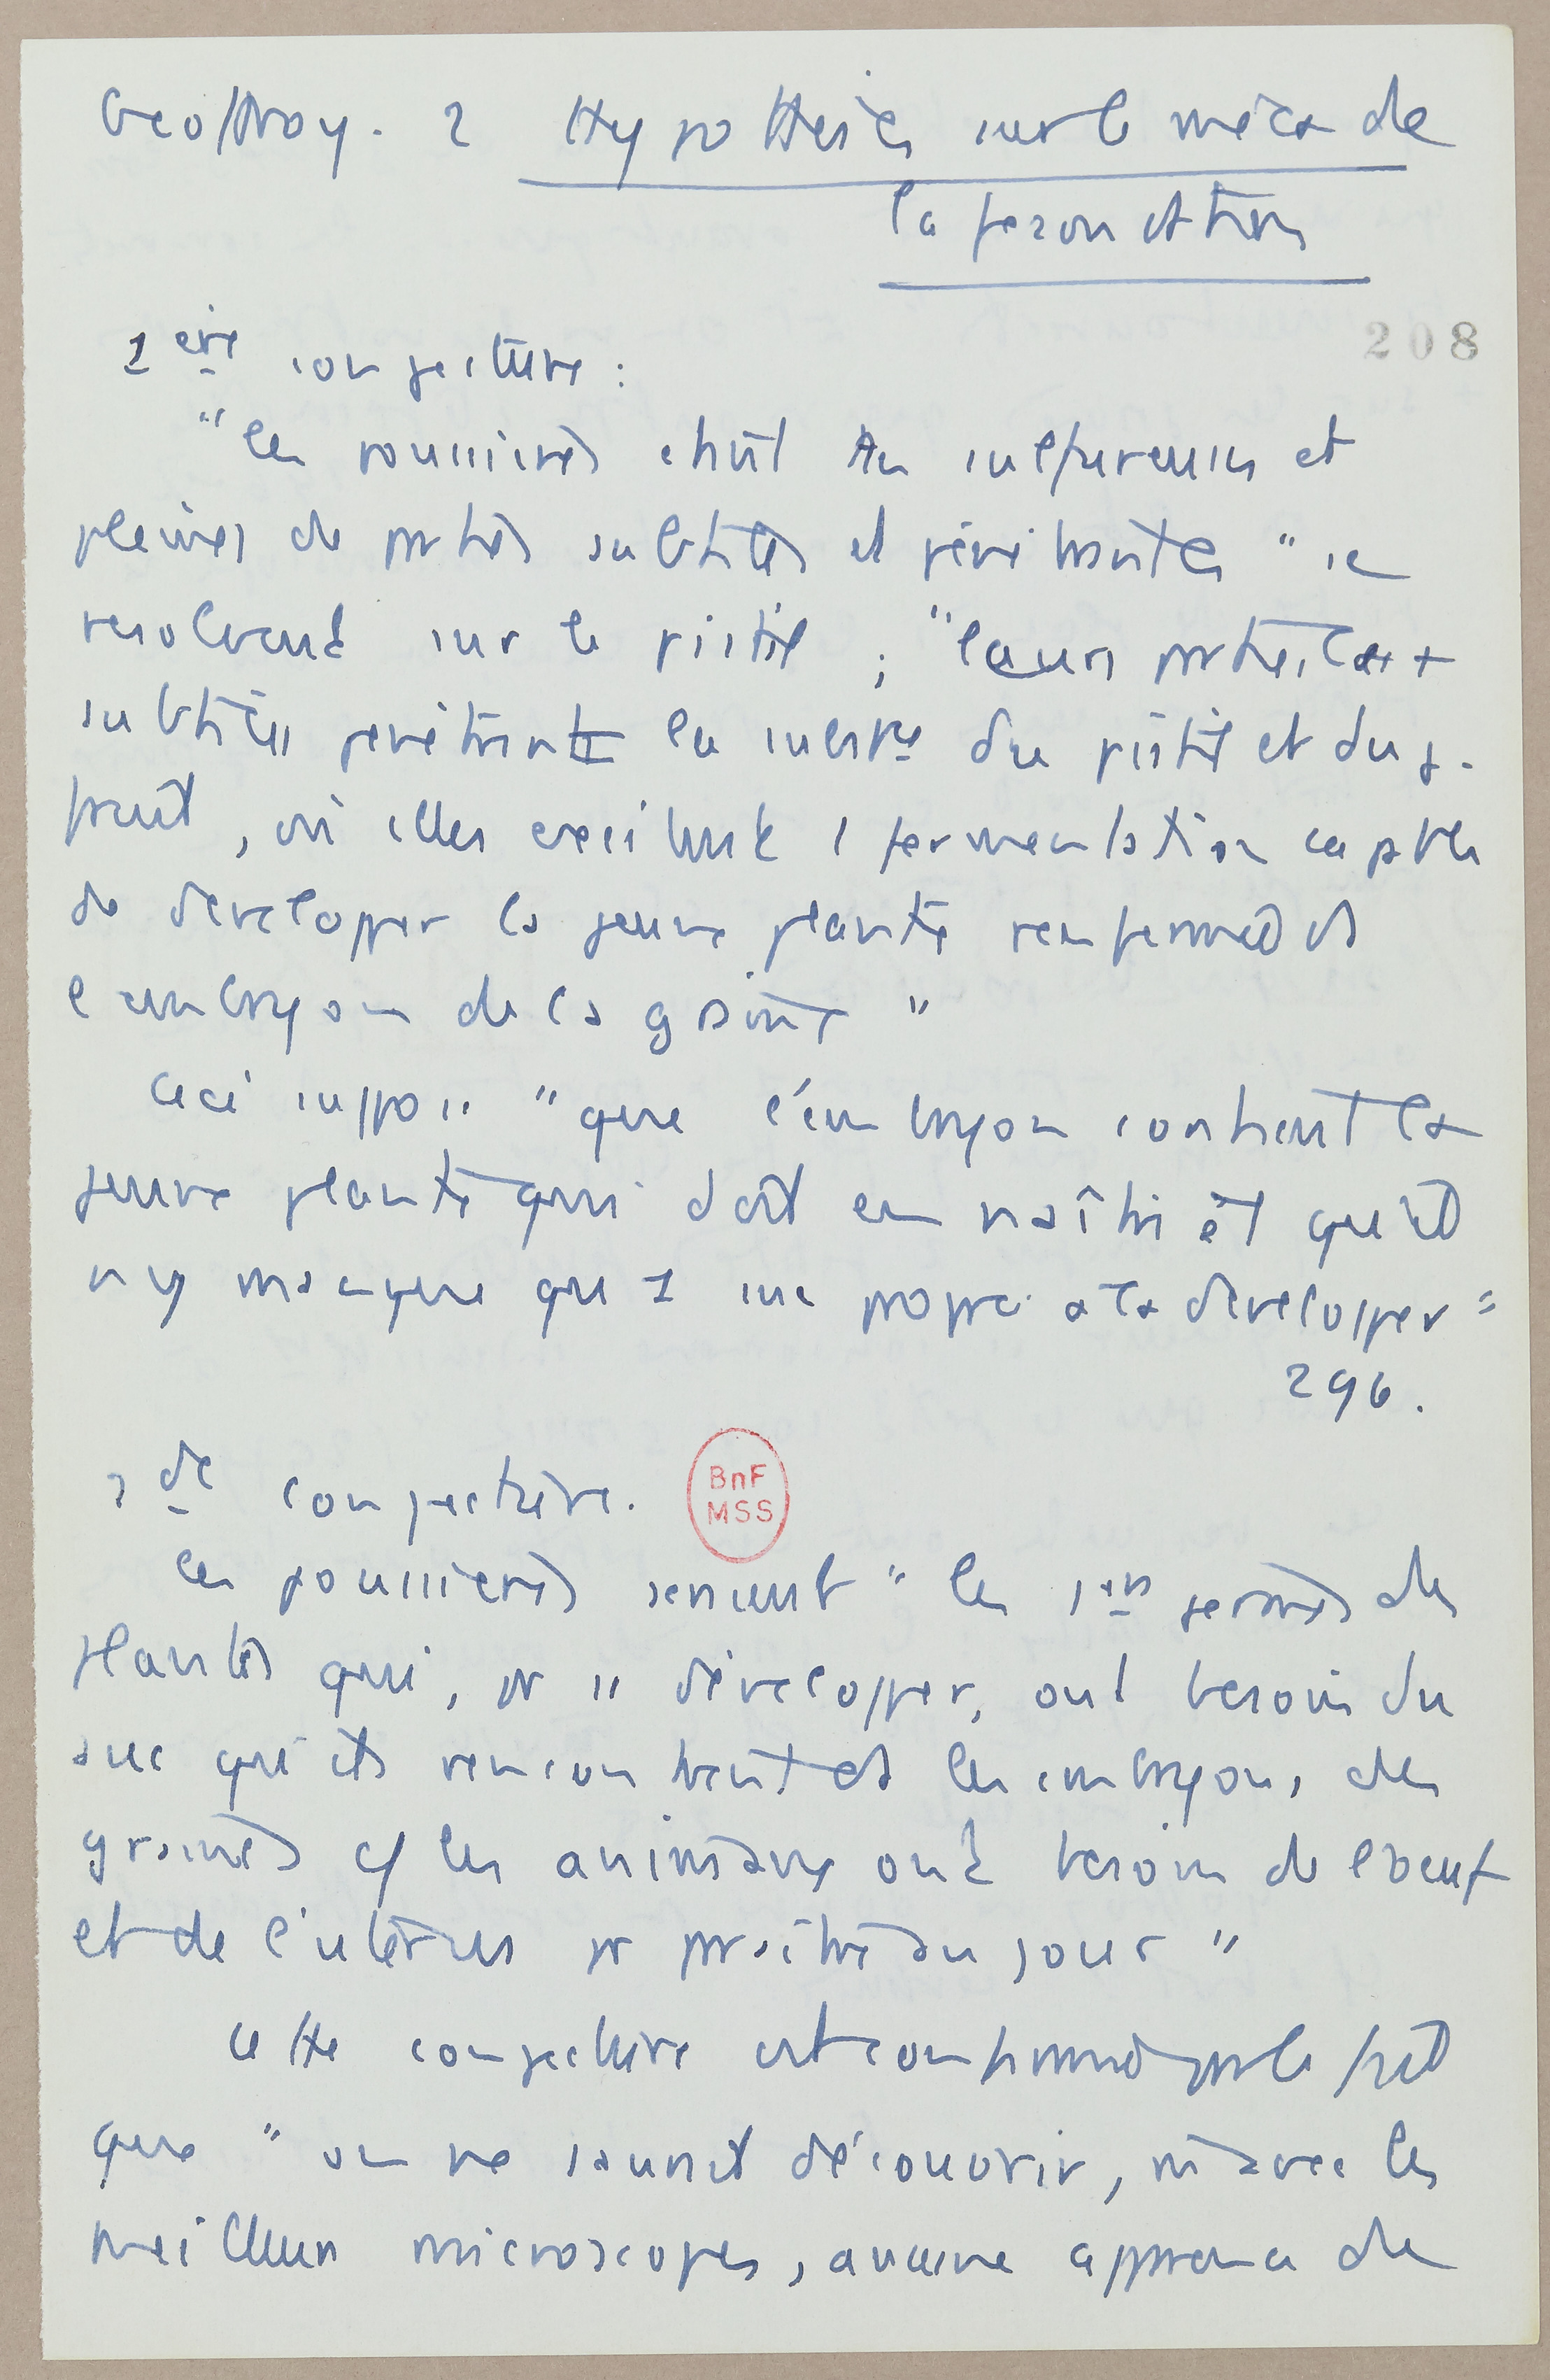 Geoffroy. 2 Hypothèses sur le méca de
la fécondation
208
1ère conjecture :
"les poussières étant tres sulfureuses et
pleines de parties subtiles et pénétrantes" se
resolvent sur le pistil ; "leurs parties les +
subtiles pénètrent la substce du pistil et du j.
fruit, où elles excitent 1 fermentation capable
de developper la jeune plante renfermée ds
l'embryon de la graine"
Ceci suppose "que l'embryon contient la
jeune plante qui doit en naître et qu'il
n'y manque que 1 suc propre à la developper"
296.
2de conjecture.
BnF
MSS
Les poussières seraient "les 1ers germes des
plantes qui, pr se développer, ont besoin du
suc qu'ils rencontrent ds les embryons des
graines cf les animaux ont besoin de l'oeuf
et de l'utérus pr paraître au jour"
Cette conjecture est confirmée par le fait
que "on ne saurait découvrir, ni avec les
meilleurs microscopes, aucune apparence de